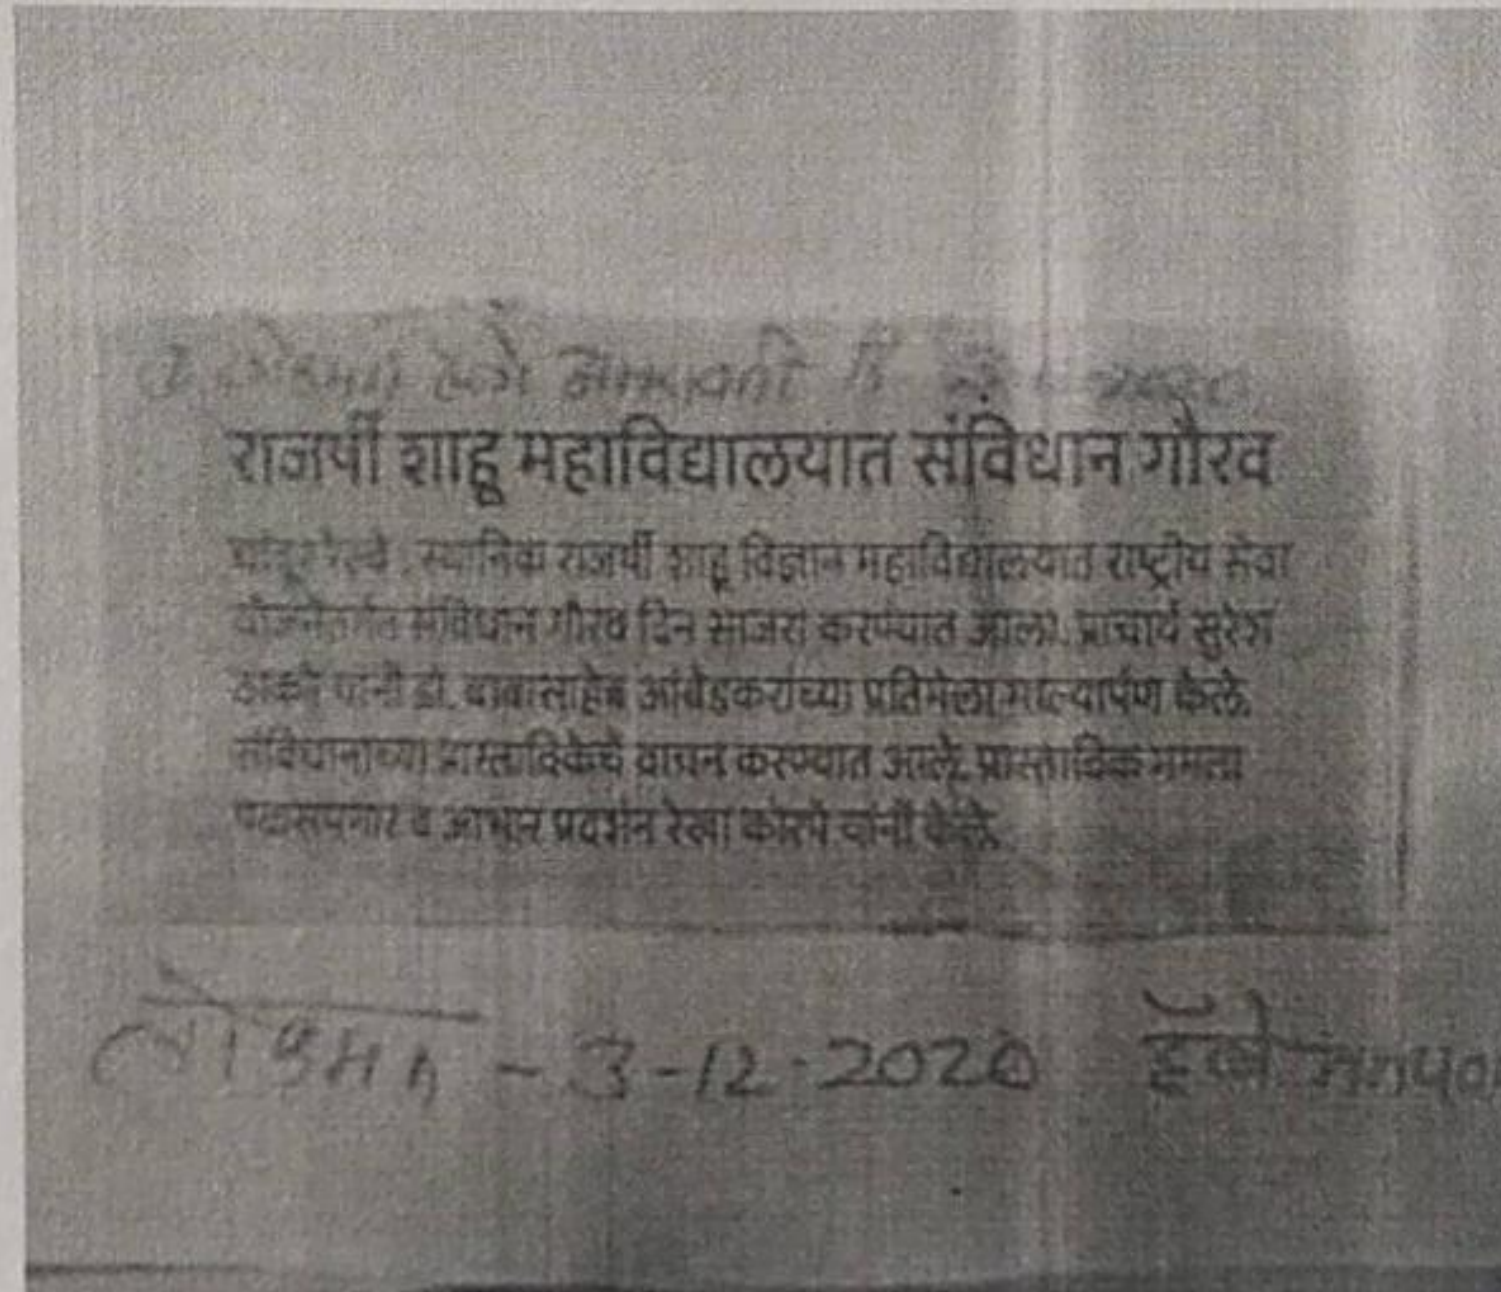 हॅलो
राजर्षी शाहू महाविद्यालयात संविधान गौरव
चांदूर रेल्वे : स्थानिक राजर्षी शाहू विज्ञान महाविद्यालयात राष्ट्रीय सेवा
योजनेतर्गत संविधान गौरव दिन साजरा करण्यात आला. प्राचार्य सुरेश
ठाकरे यांनी डॉ. बाबासाहेब आंबेडकरांच्या प्रतिमेला माल्यार्पण केले.
संविधानाच्या प्रास्ताविकेचे वाचन करण्यात आले. प्रास्ताविक
व आभार प्रदर्शन रेखा यांनी केले.
लोकमत - 3-12-2020 हॅलो